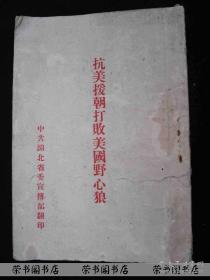 抗美援朝打敗美國野心狼
中共湖北省委宣傳部翻印
荣书林书店 荣书林书店 荣书林书店